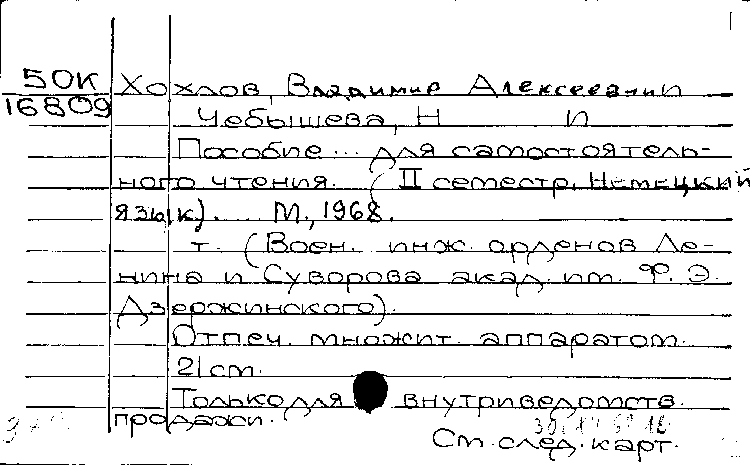 50К Хохлов, Владимир Алексеевич и
16809
Чебышева, Н И
Пособие ... для самостоятель-
ного чтения. (II семестр, Немецкий
язык). ... М., 1968.
т. (Воен. инж. орденов Ле-
нина и Суворова акад. им. Ф. Э.
Дзержинского).
Отпеч. множит. аппаратом.
21 см.
Только для внутриведомств.
продажи.
См. след. карт.